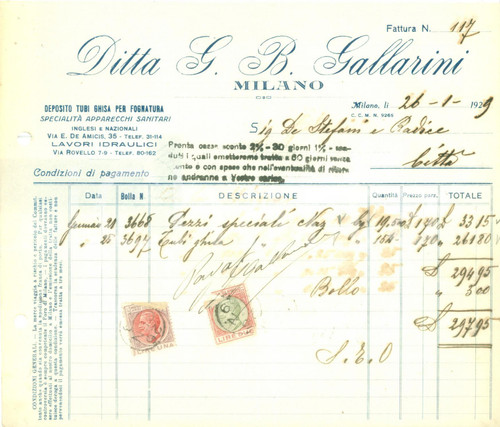 Fattura N. 117
Ditta G. B. Gallarini
MILANO
DEPOSITO TUBI GHISA PER FOGNATURA
SPECIALITÀ APPARECCHI SANITARI
INGLESI & NAZIONALI
VIA E. DE AMICIS, 35 - TELEF. 31-114
LAVORI IDRAULICI
VIA ROVELLO 7-9 - TELEF. 80-162
Milano, li 26-1-1929
C. C. M. N. 9265
Sig De Stefani e Radice
Città
Pronta cassa sconto 2½% - 30 giorni 1½ - sca-
duti i quali emetteremo tratta a 60 giorni senza
sconto e con spese che nell'eventualità di ritor-
no andranno a Vostro carico.
Condizioni di pagamento
Data Bolla N. DESCRIZIONE Quantità Prezzo parz. TOTALE
Gennaio 21 3668 Pezzi speciali Naz kg 19,50 £ 1,70 £ 33,15
" 25 3697 Tubi ghisa " 154 " 1,70 " 261,80
£ 294,95
Bollo " 3,00
£ 297,95
LIRE
S. E. O
CONDIZIONI GENERALI.